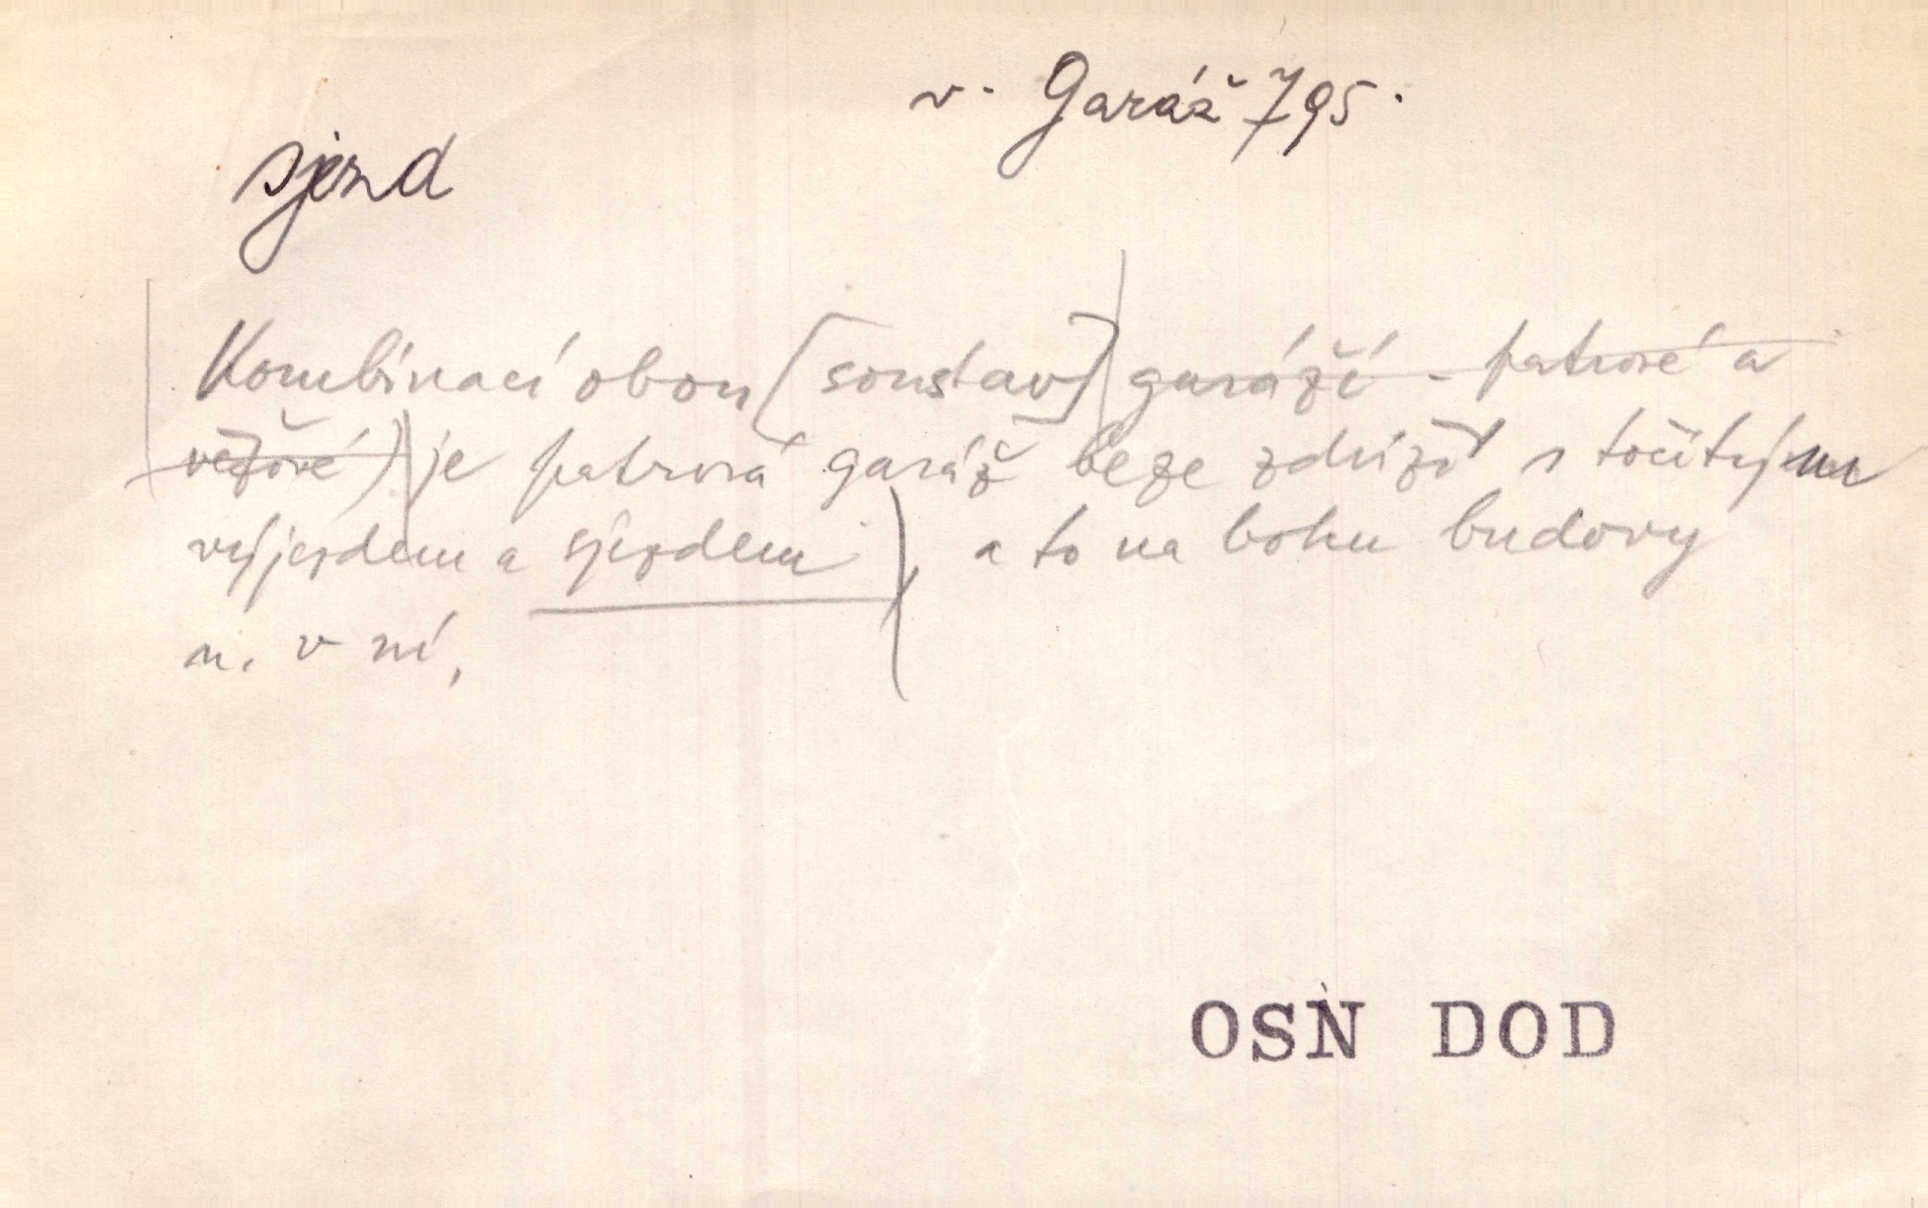 v. Garáž 795.
sjezd
Kombinací obou [soustav] garáží - patrové a
věžové) je patrová garáž beze zdviží s točitým
vyjezdem a sjezdem, a to na boku budovy
n. v ní,
OSN DOD